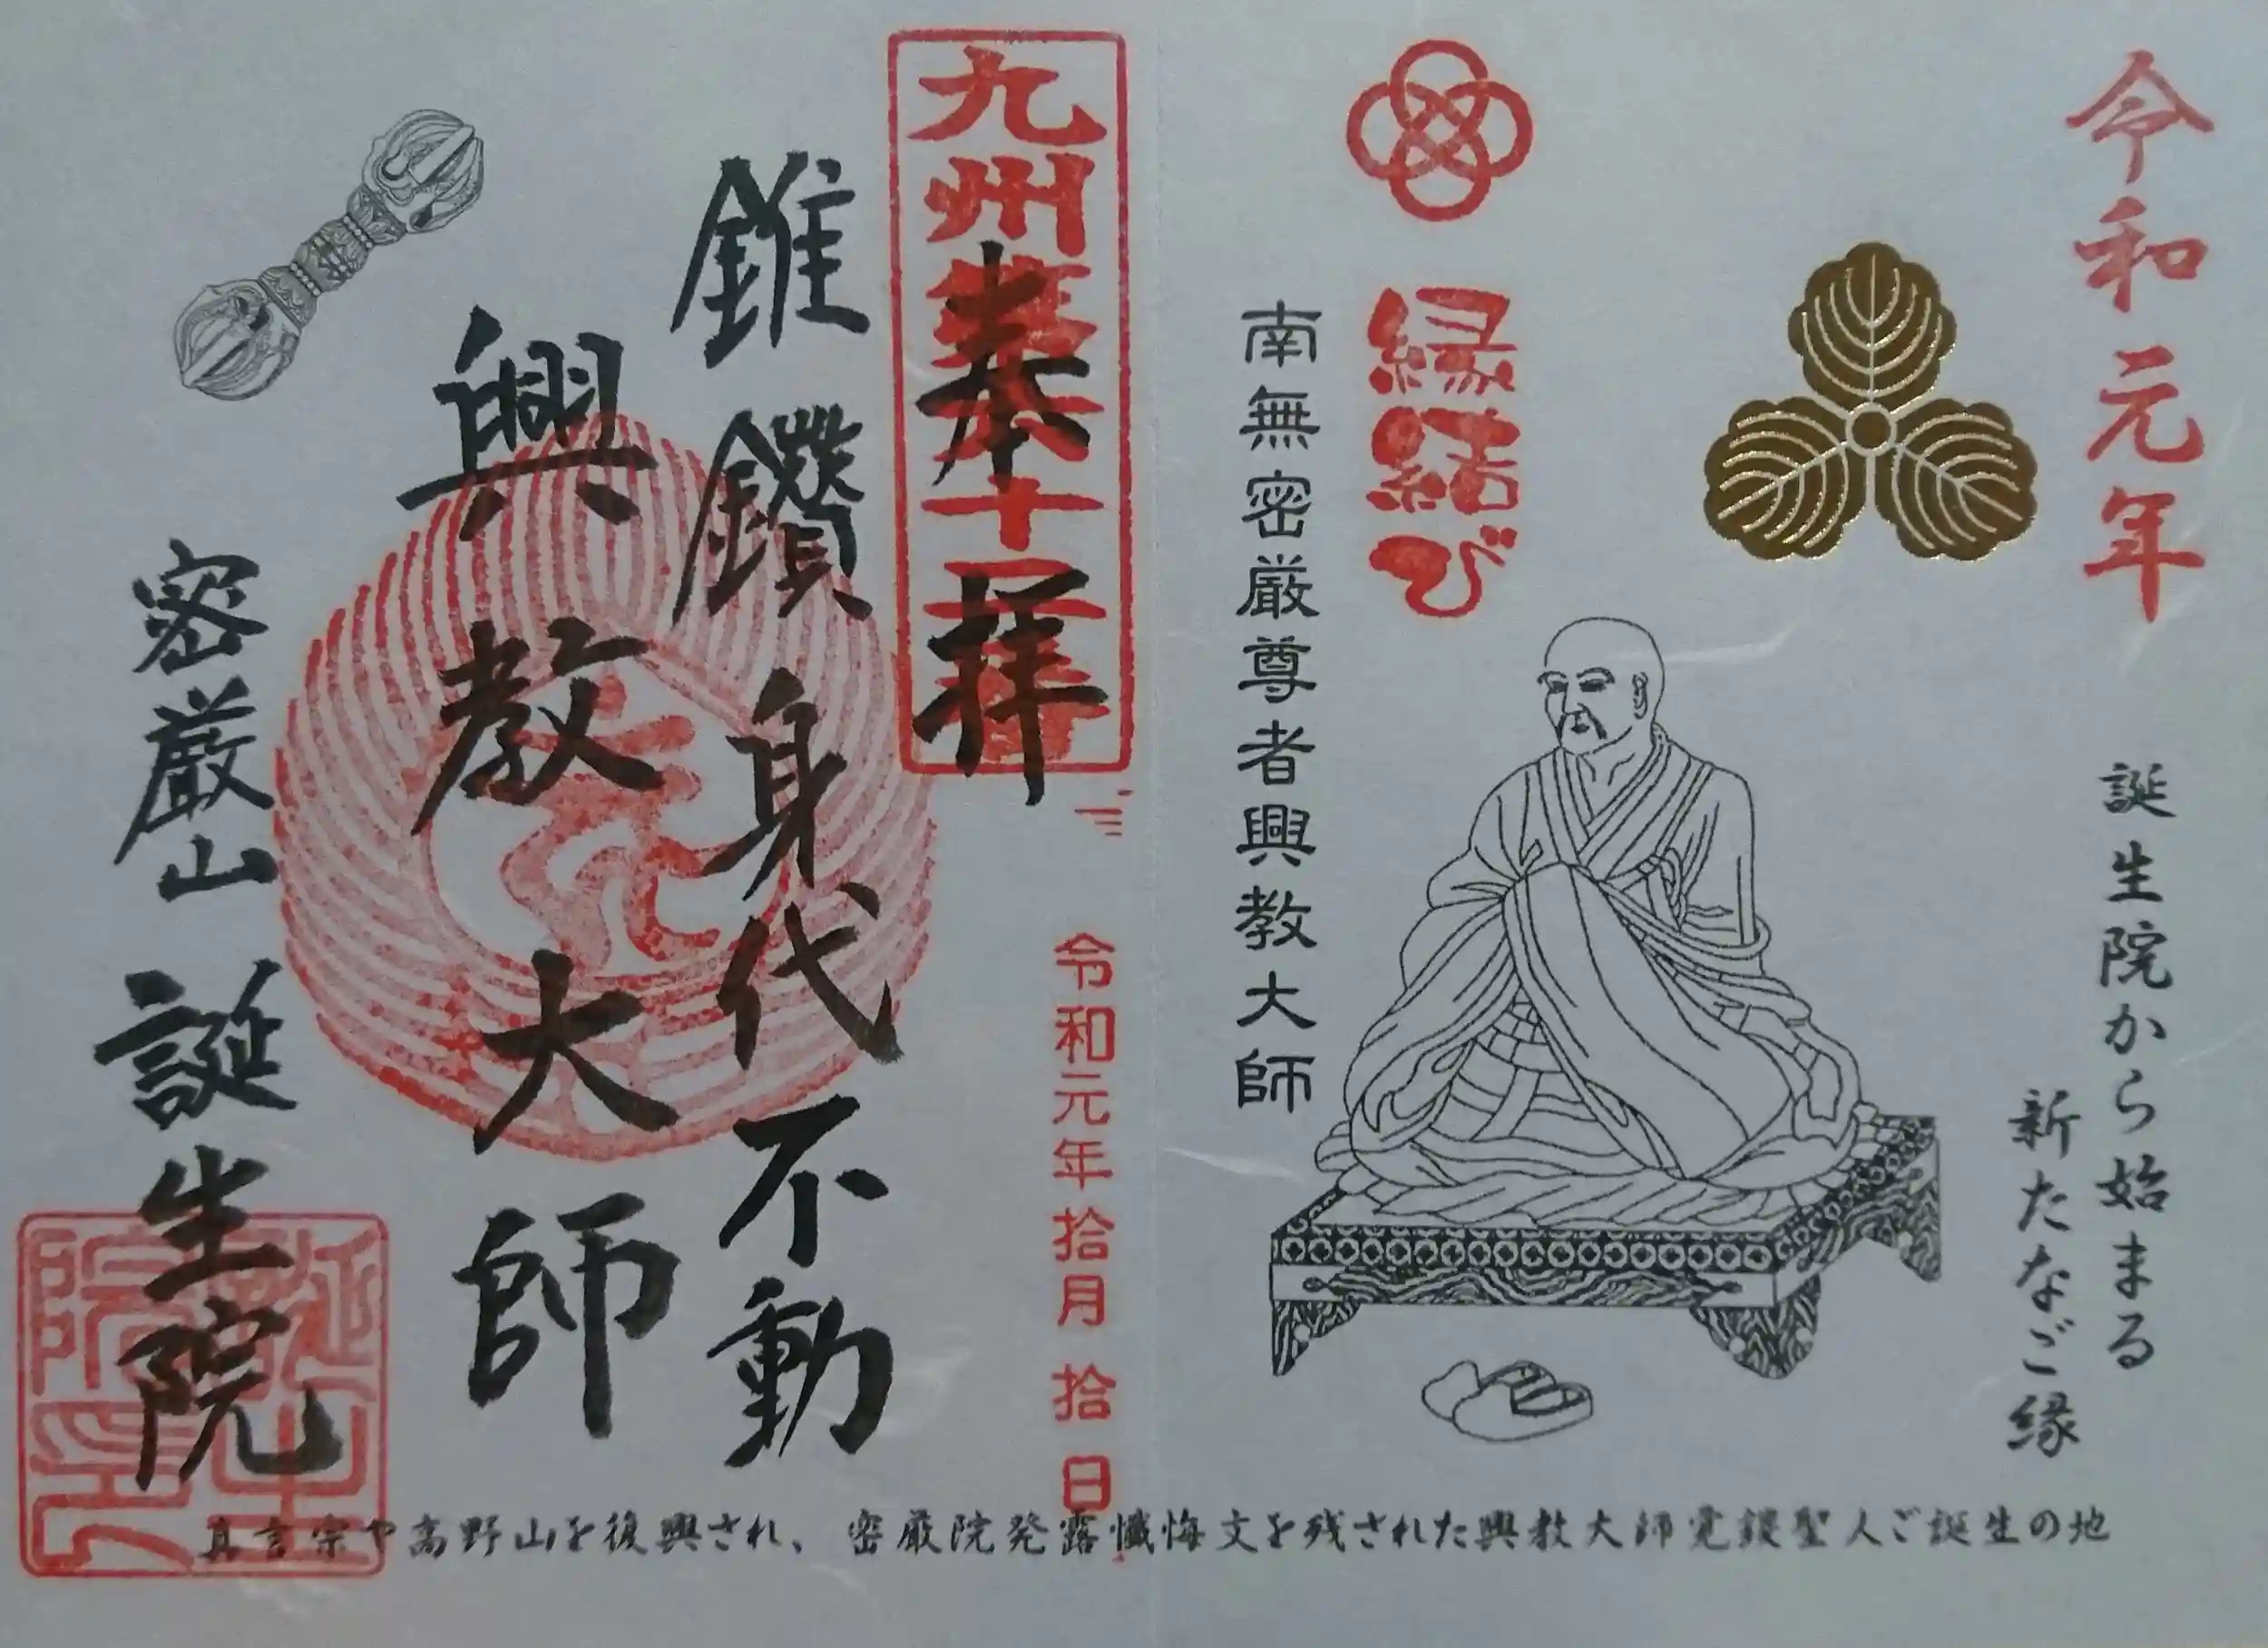 令和元年
誕生院から始まる
新たなご縁
縁結び
南無密厳尊者興教大師
九州
十
奉拝
令和元年拾月拾日
錐鑽身代不動
興教大師
密厳山 誕生院
誕生院
真言宗や高野山を復興され、密厳院発露懺悔文を残された興教大師覚鑁聖人ご誕生の地